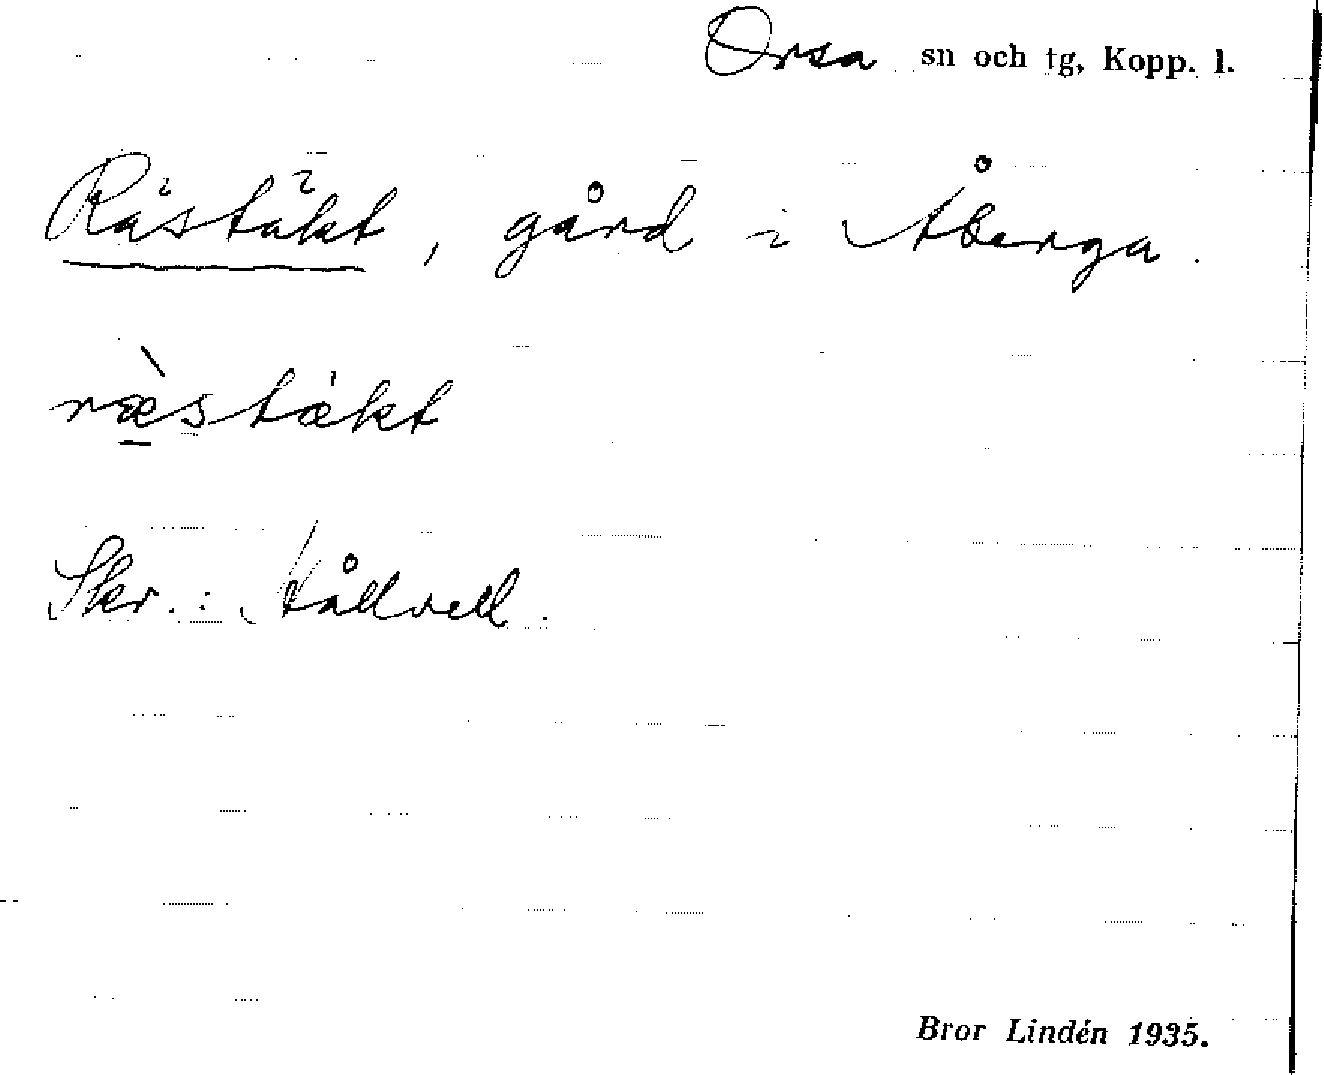 Orsa sn och tg, Kopp. l.
Rästäkt, gård i Åberga.
ræ̀stækt
Skr.: Hållvell.
Bror Lindén 1935.